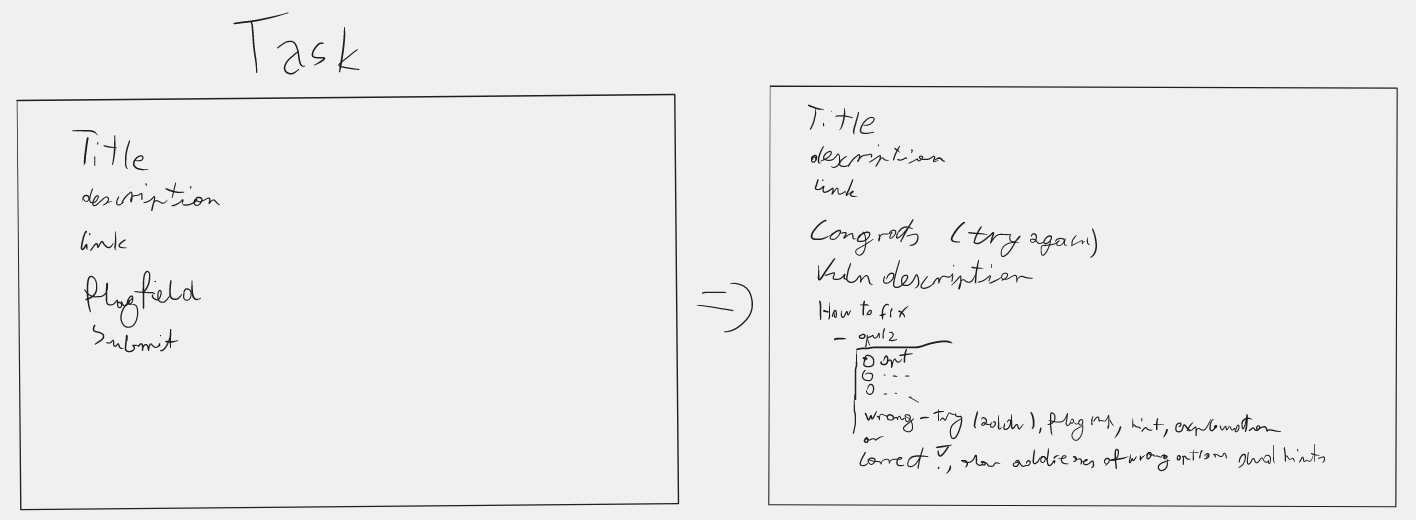 Task
Title
description
link
flag field
Submit
Title
description
link
Congrats (try again)
Vuln description
How to fix
- quiz
opt
...
...
wrong - try, hint, explanation
or
Correct, of wrong options hints